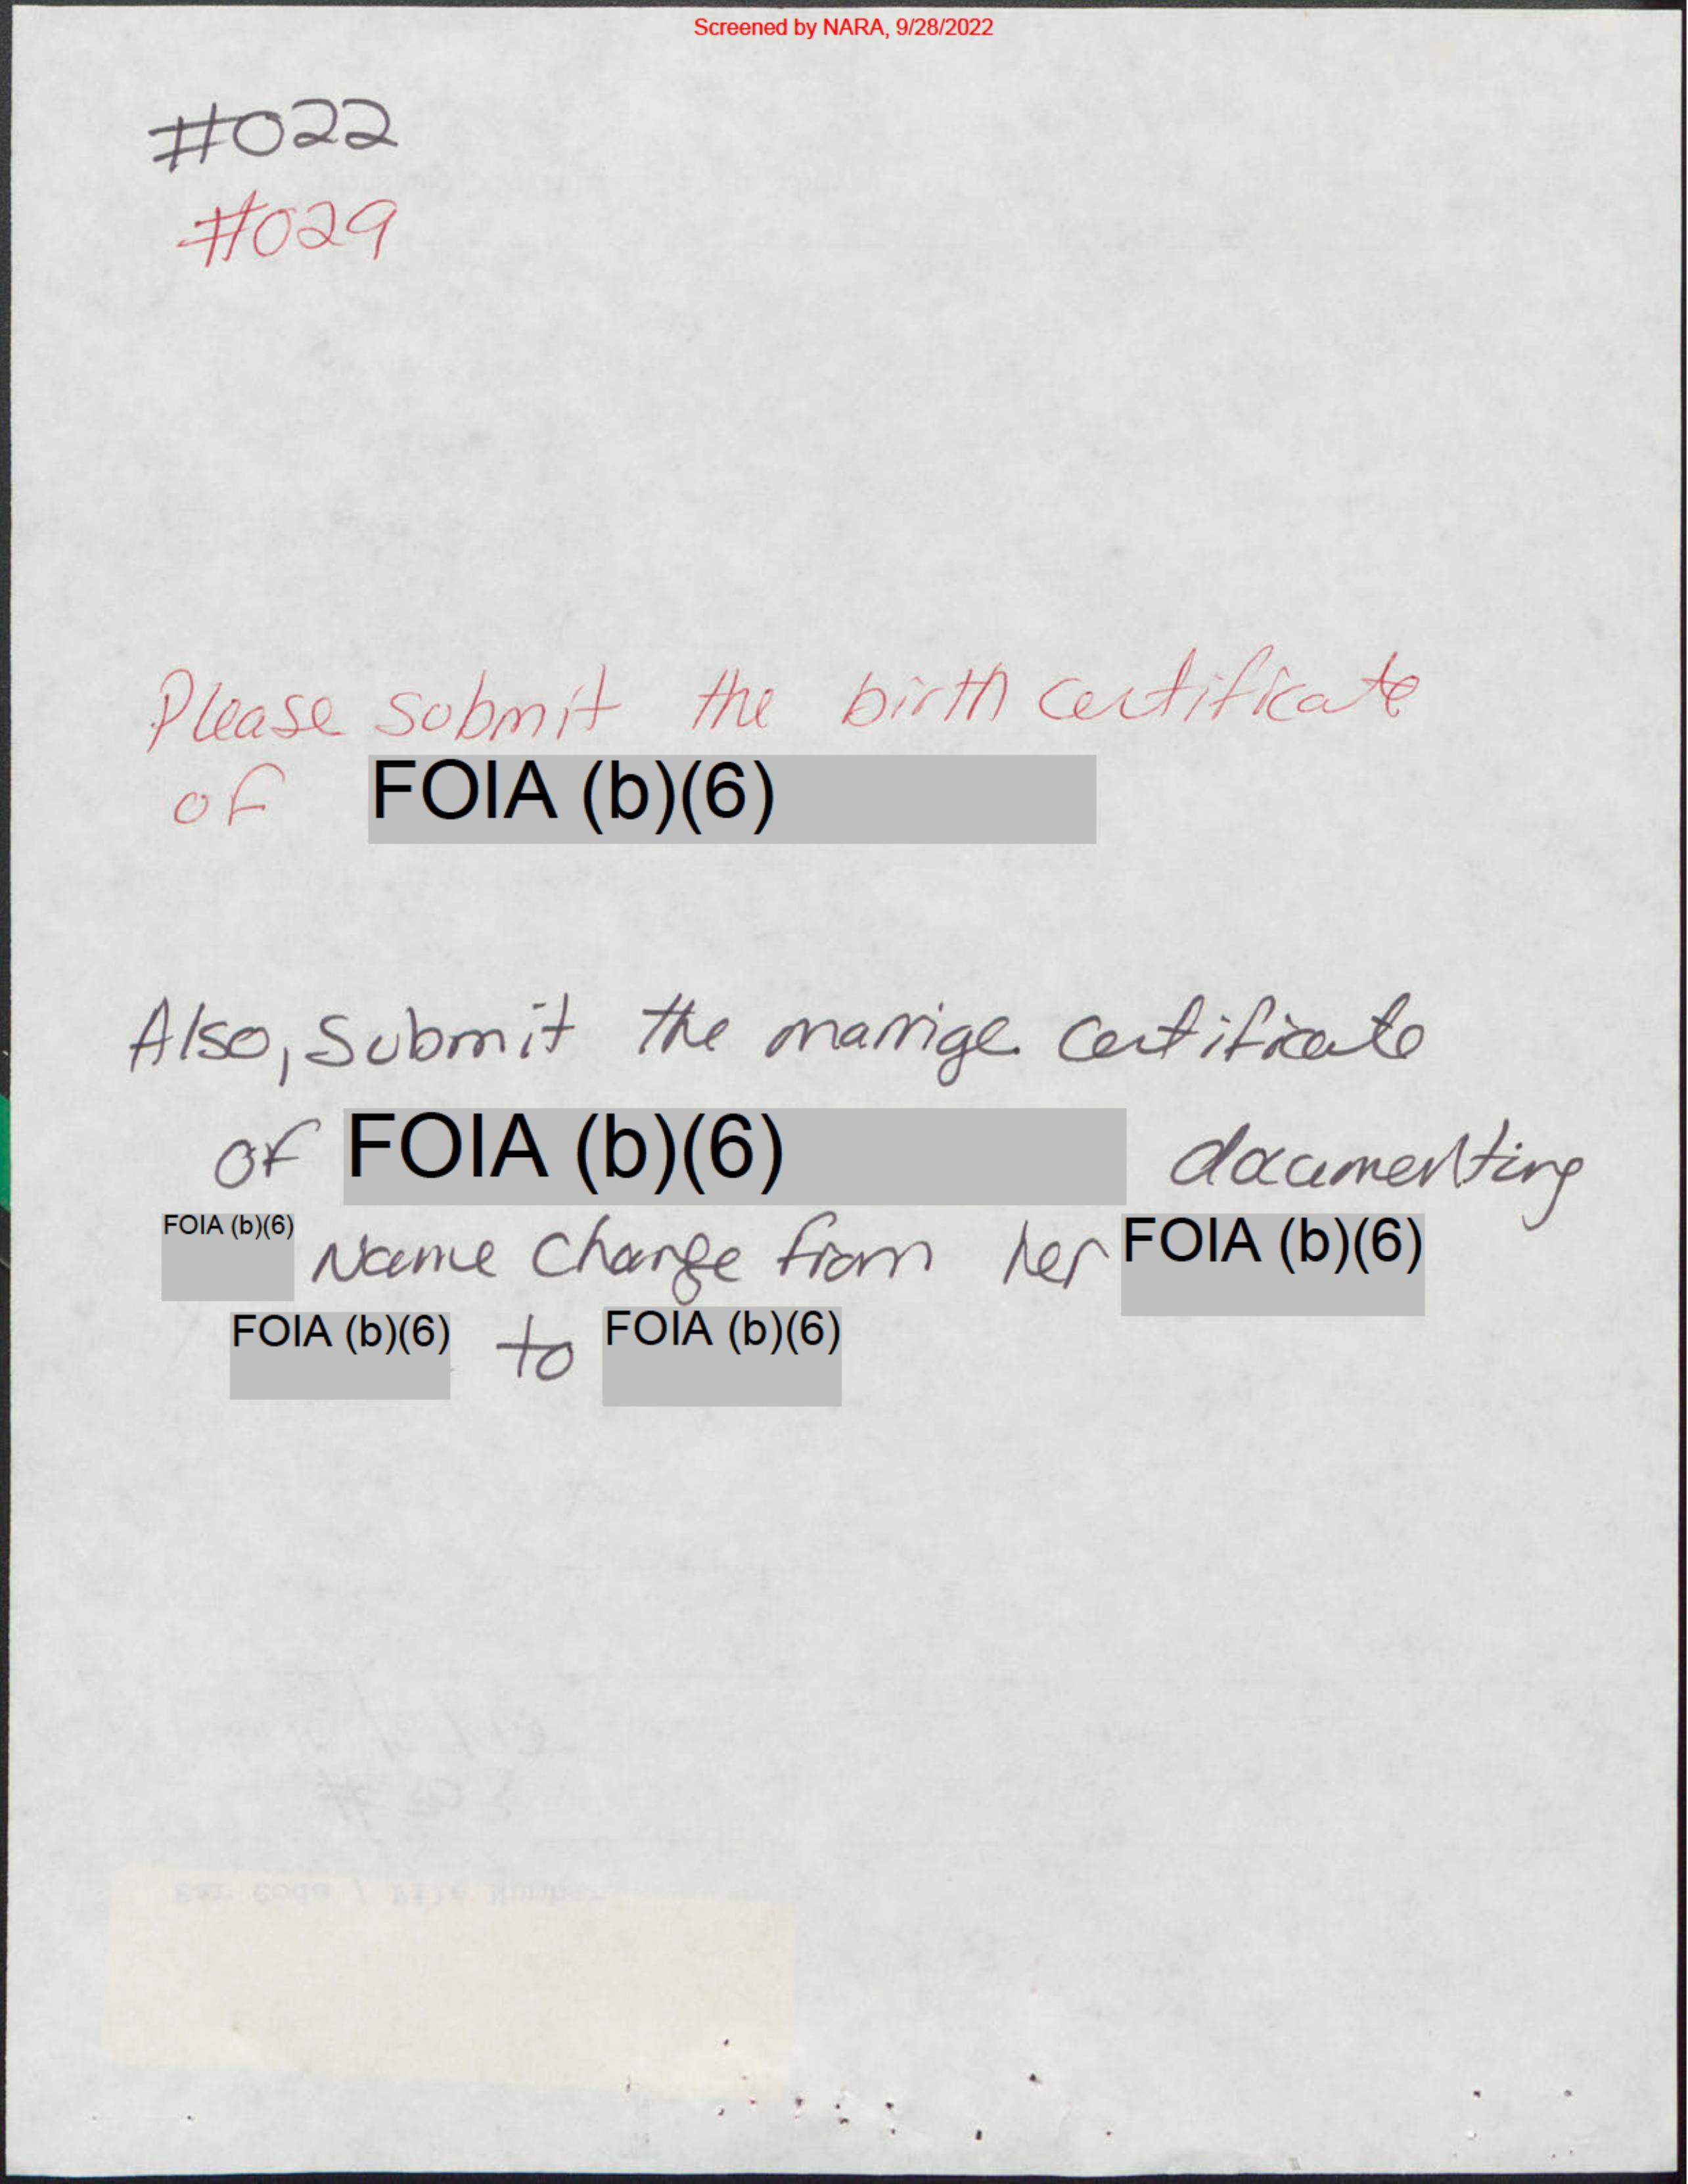 Screened by NARA, 9/28/2022
#022
#029
Please submit the birth certificate
of FOIA (b)(6)
Also, Submit the marrige certificate
of FOIA (b)(6) documenting
FOIA (b)(6) Name Change from her FOIA (b)(6)
FOIA (b)(6) to FOIA (b)(6)
Bar Code / File Number